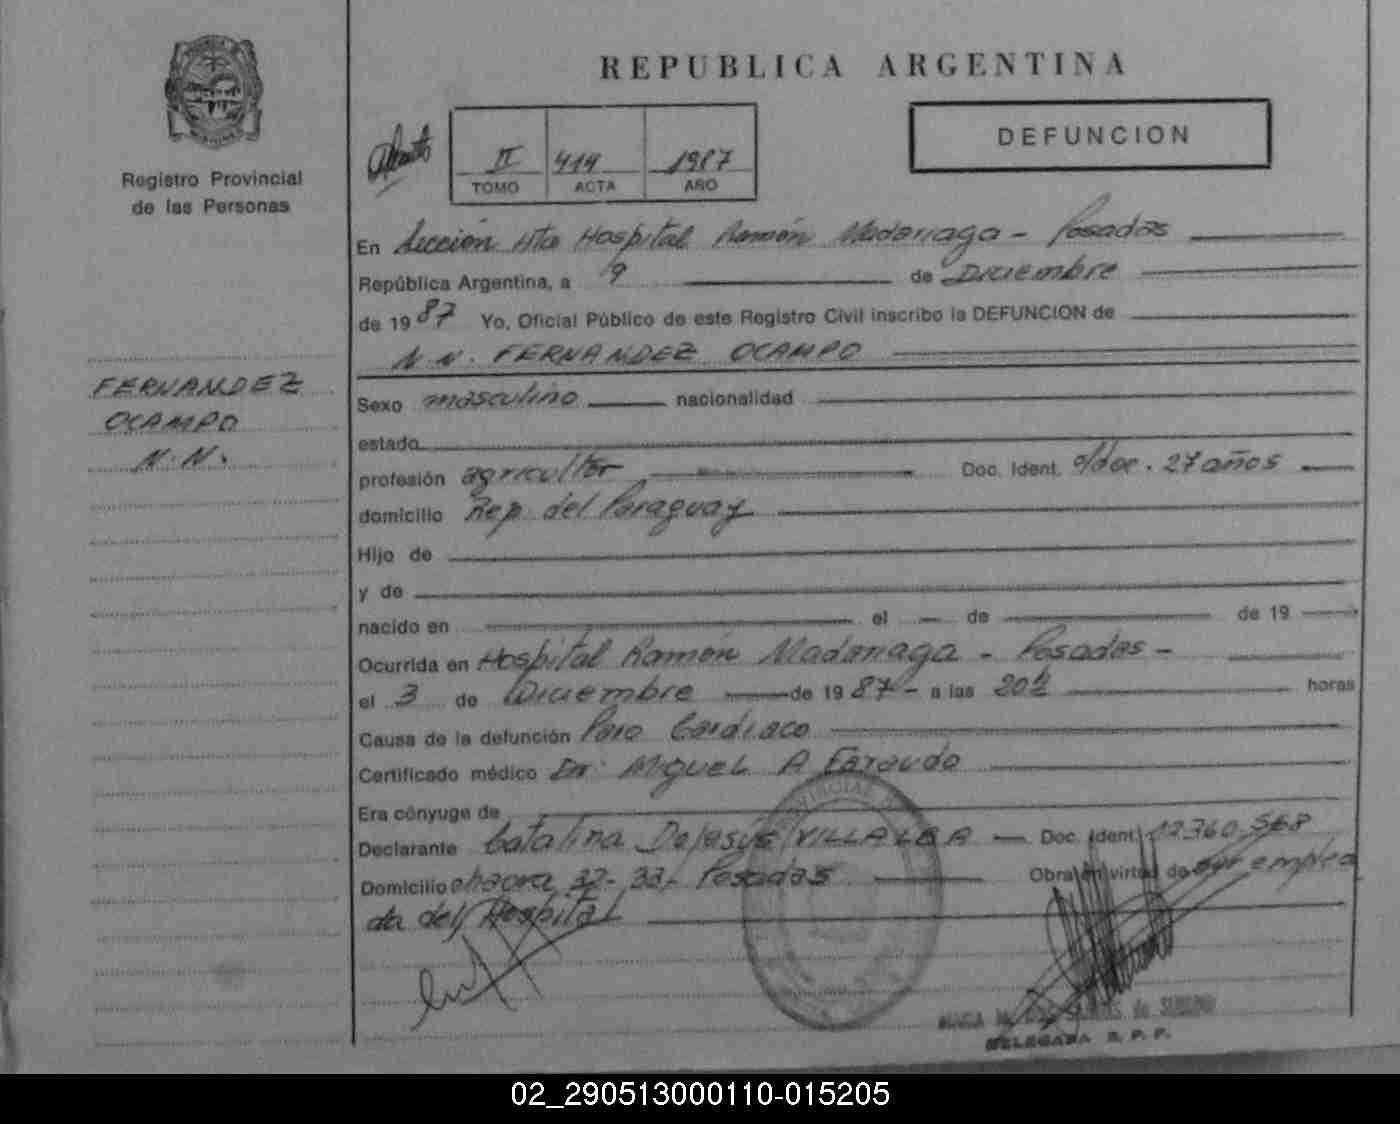 REPUBLICA ARGENTINA
Registro Provincial
de las Personas
II 414 1987
TOMO ACTA AÑO
DEFUNCION
En Sección Hta Hospital Ramón Madariaga - Posadas
República Argentina, a 9 de Diciembre
de 1987 Yo, Oficial Público de este Registro Civil inscribo la DEFUNCION de
N.N. FERNANDEZ OCAMPO
FERNANDEZ
OCAMPO
N.N.
Sexo masculino nacionalidad
estado
profesión agricultor Doc. Ident. s/doc. 27 años
domicilio Rep. del Paraguay
Hijo de
y de
nacido en el de de 19
Ocurrida en Hospital Ramón Madariaga - Posadas -
el 3 de Diciembre de 1987 - a las 20h horas
Causa de la defunción Paro Cardiaco
Certificado médico Dr. Miguel A
Era cónyuge de
Declarante Catalina Dejesus VILLALBA - Doc. Ident. 12360.568
Domicilio chacra 32-33- Posadas Obra en virtud de ser emplea
da del Hospital
DELEGADA R. P. P.
02_290513000110-015205